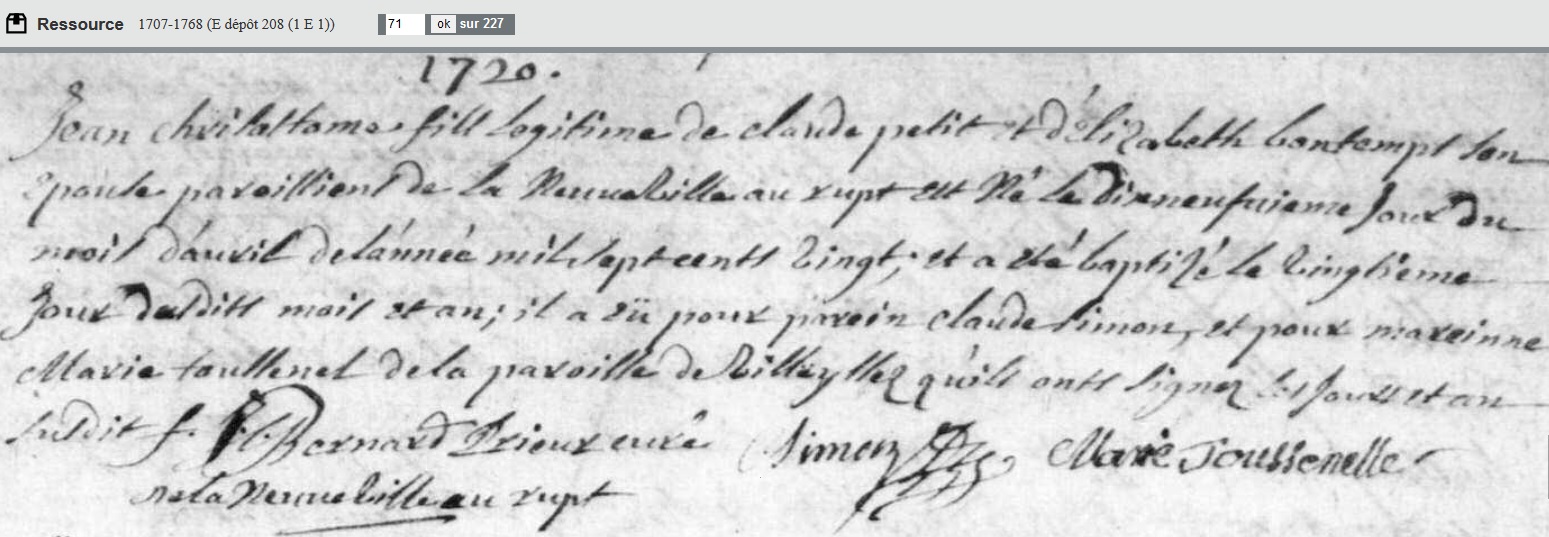 Ressource 1707-1768 (E dépôt 208 (1 E 1)) 71 ok sur 227
1720.
Jean chrisostome fils legitime de claude petit et d'élizabeth bontemps son
épouse paroissiens de la Neuueville au rupt est né le dixneufuieme Jour du
mois d'auril de l'année mil sept cents vingt; et a été baptizé le vingtieme
Jour desdits mois et an; il a eü pour parein claude simon, et pour mareinne
Marie toussenel de la paroisse de qu'ils onts signez les Jours et an
susdit f. Bernard Prieur curé Simon Marie Toussenelle
de la Neuueville au rupt